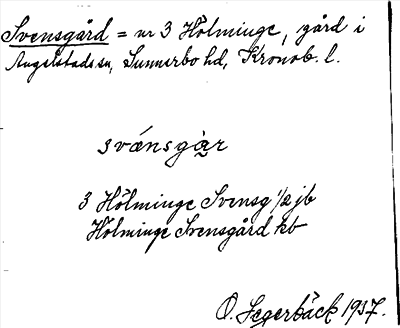 Svensgård = nr 3 Hölminge, gård i
Angelstads sn, Sunnerbo hd, Kronob. l.
svǽnsgàr
3 Hölminge Svensg 1/2 jb
Holminge Svensgård kb
O. Segerbäck 1937.